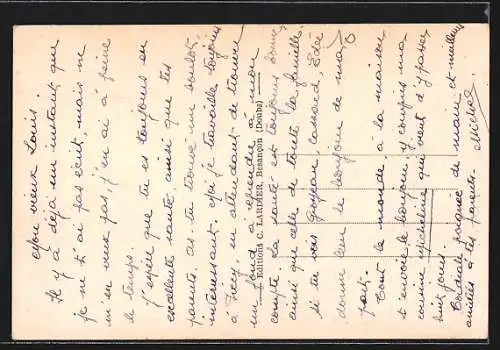 Mon vieux Louis.
Il y a déjà un instant que
je ne t'ai pas écrit, mais ne
m'en veux pas, j'en ai à peine
le temps.
J'espère que tu es toujours en
excellente santé ainsi que tes
parents. As tu trouvé un boulot
intéressant. Moi je travaille toujours
à en attendant de trouver
un fond à reprendre à mon
compte. La santé est toujours bonne
ainsi que celle de toute la famille.
si tu vois Cassard,
donne leur le bonjour de ma
part.
Tout le monde à la maison
t'envoie le bonjour y compris ma
cousine Micheline qui vient d'y passer
huit jours.
Cordiale poignée de main et meilleures
amitiés à tes parents.
Michel
Editions C. LARDIER, Besançon (Doubs)